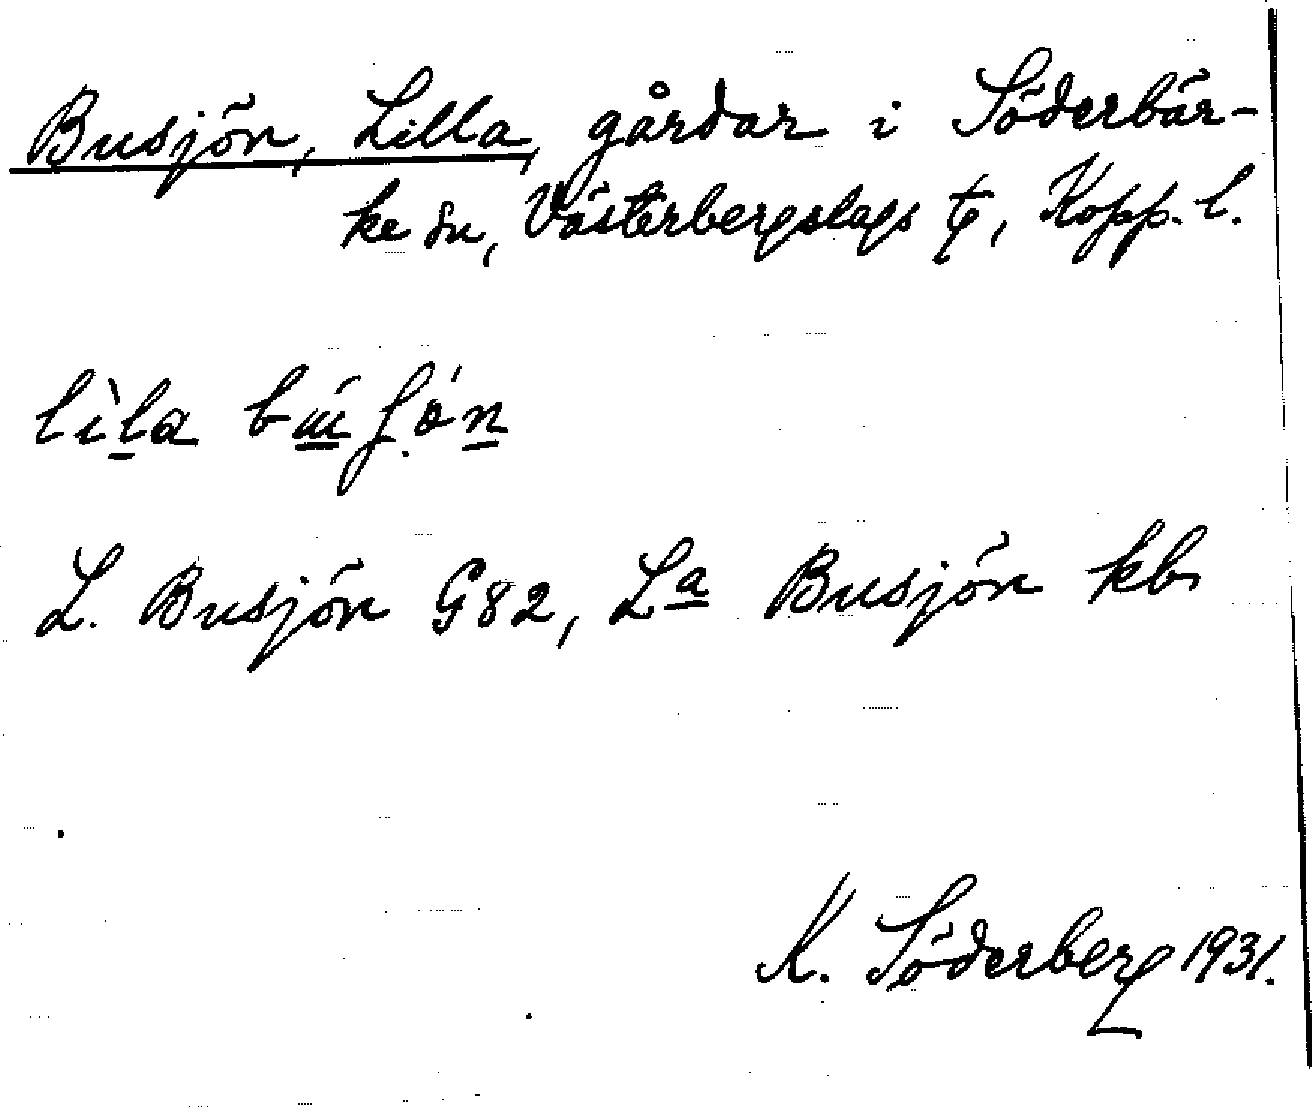 Busjön, Lilla, gårdar i Söderbär-
ke sn, Västerbergslags tg, Kopp. l.
lìla
L. Busjön G82, La Busjön kb
K. Söderberg 1931.